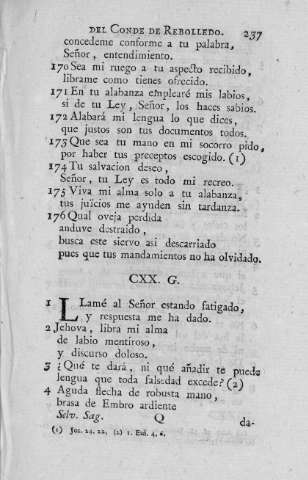 DEL CONDE DE REBOLLEDO. 237
concedeme conforme a tu palabra,
Señor, entendimiento.
170 Sea mi ruego a tu aspecto recibido,
librame como tienes ofrecido.
171 En tu alabanza emplearé mis labios,
si de tu Ley, Señor, los haces sabios.
172 Alabará mi lengua lo que dices,
que justos son tus documentos todos.
173 Que sea tu mano en mi socorro pido,
por haber tus preceptos escogido. (1)
174 Tu salvacion deseo,
Señor, tu Ley es todo mi recreo.
175 Viva mi alma solo a tu alabanza,
tus juicios me ayuden sin tardanza.
176 Qual oveja perdida
anduve destraido,
busca este siervo asi descarriado
pues que tus mandamientos no ha olvidado.
CXX. G.
1 LLamé al Señor estando fatigado,
y respuesta me ha dado.
2 Jehova, libra mi alma
de labio mentiroso,
y discurso doloso.
3 ¿Qué te dará, ni qué añadir te puede
lengua que toda falsedad excede? (2)
4 Aguda flecha de robusta mano,
brasa de Embro ardiente
Selv. Sag. Q da-
(1) Jos. 24. 22. (2) 1. Esd. 4. 6.